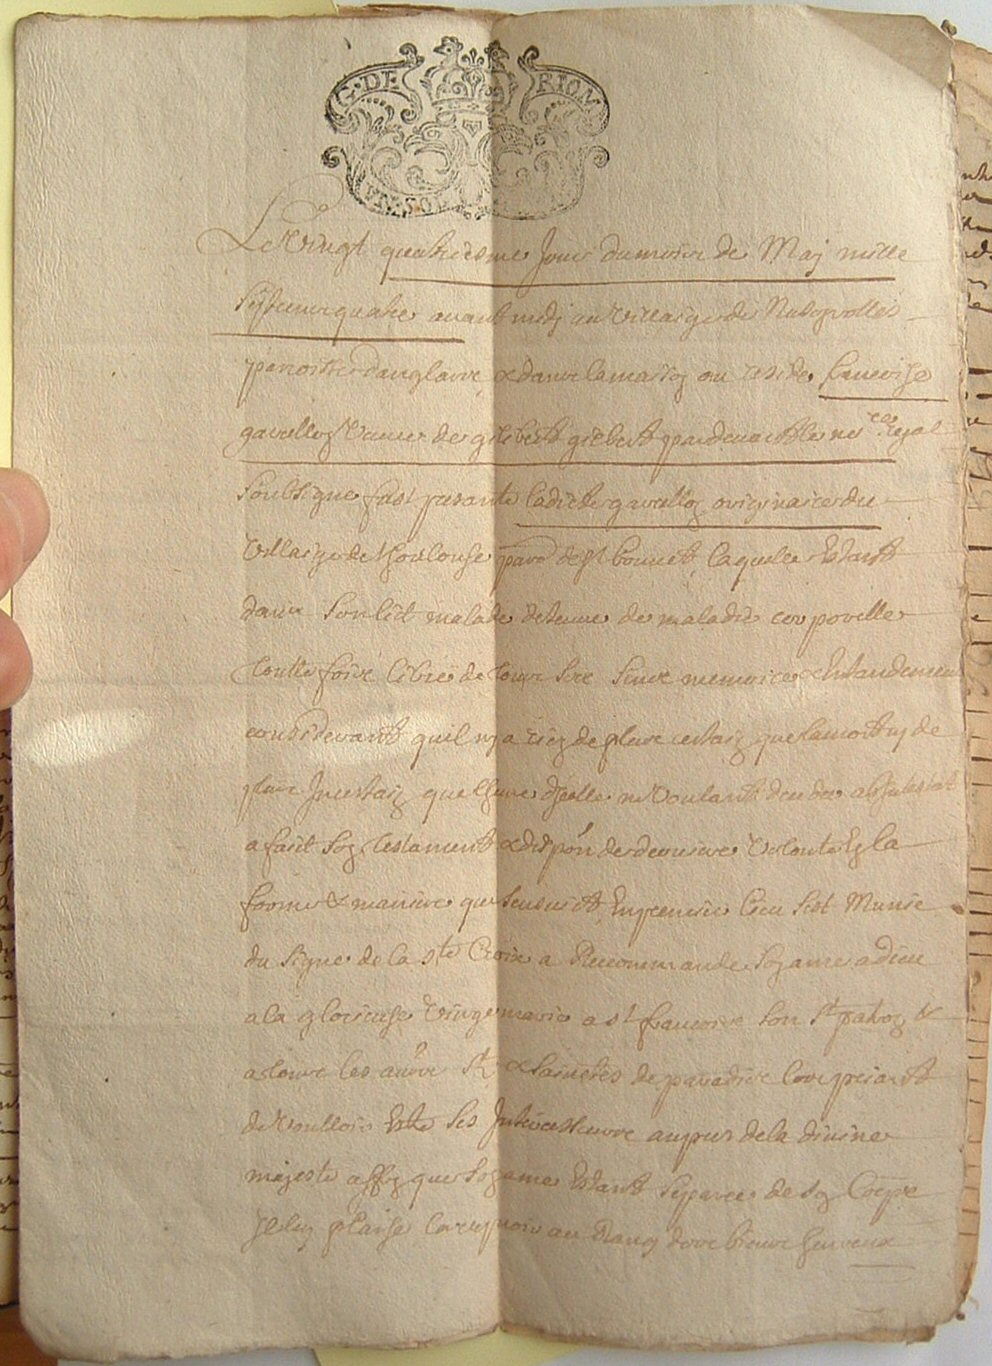 G·DE RION
Le vingt quatriesme jour du mois de May mille
sept cent quatre avant midy au villaige de
parroisse danglare & dans la maison ou reside francoise
gavellon veuve de gilbert gilbert pardevant le no.re royal
soubsigne fust presante ladicte gavellon originaire du
villaige de thoulouse parr. de st bonnet laquelle estant
dans son lict malade detenue de maladie corporelle
toutte fois libre de tous ses sens memoire & entandement
considerant quil ny a rien de plus certain que la mort ny de
plus incertain que lheure dicelle ne voulant
a faict son testament & dispon de derniere volonte en la
forme & maniere que sensuict en premier lieu sest munie
du signe de la ste Croix a Recommande son ame a dieu
a la glorieuse vierge marie a st francois son st patron &
a tous les autres sts & sainctes de paradis les priant
de voulloir estre ses intercesseurs aupres de la divine
majeste affin que son ame estant separee de son Corps
il luy plaise la recepvoir au Rang de ses bienheureux